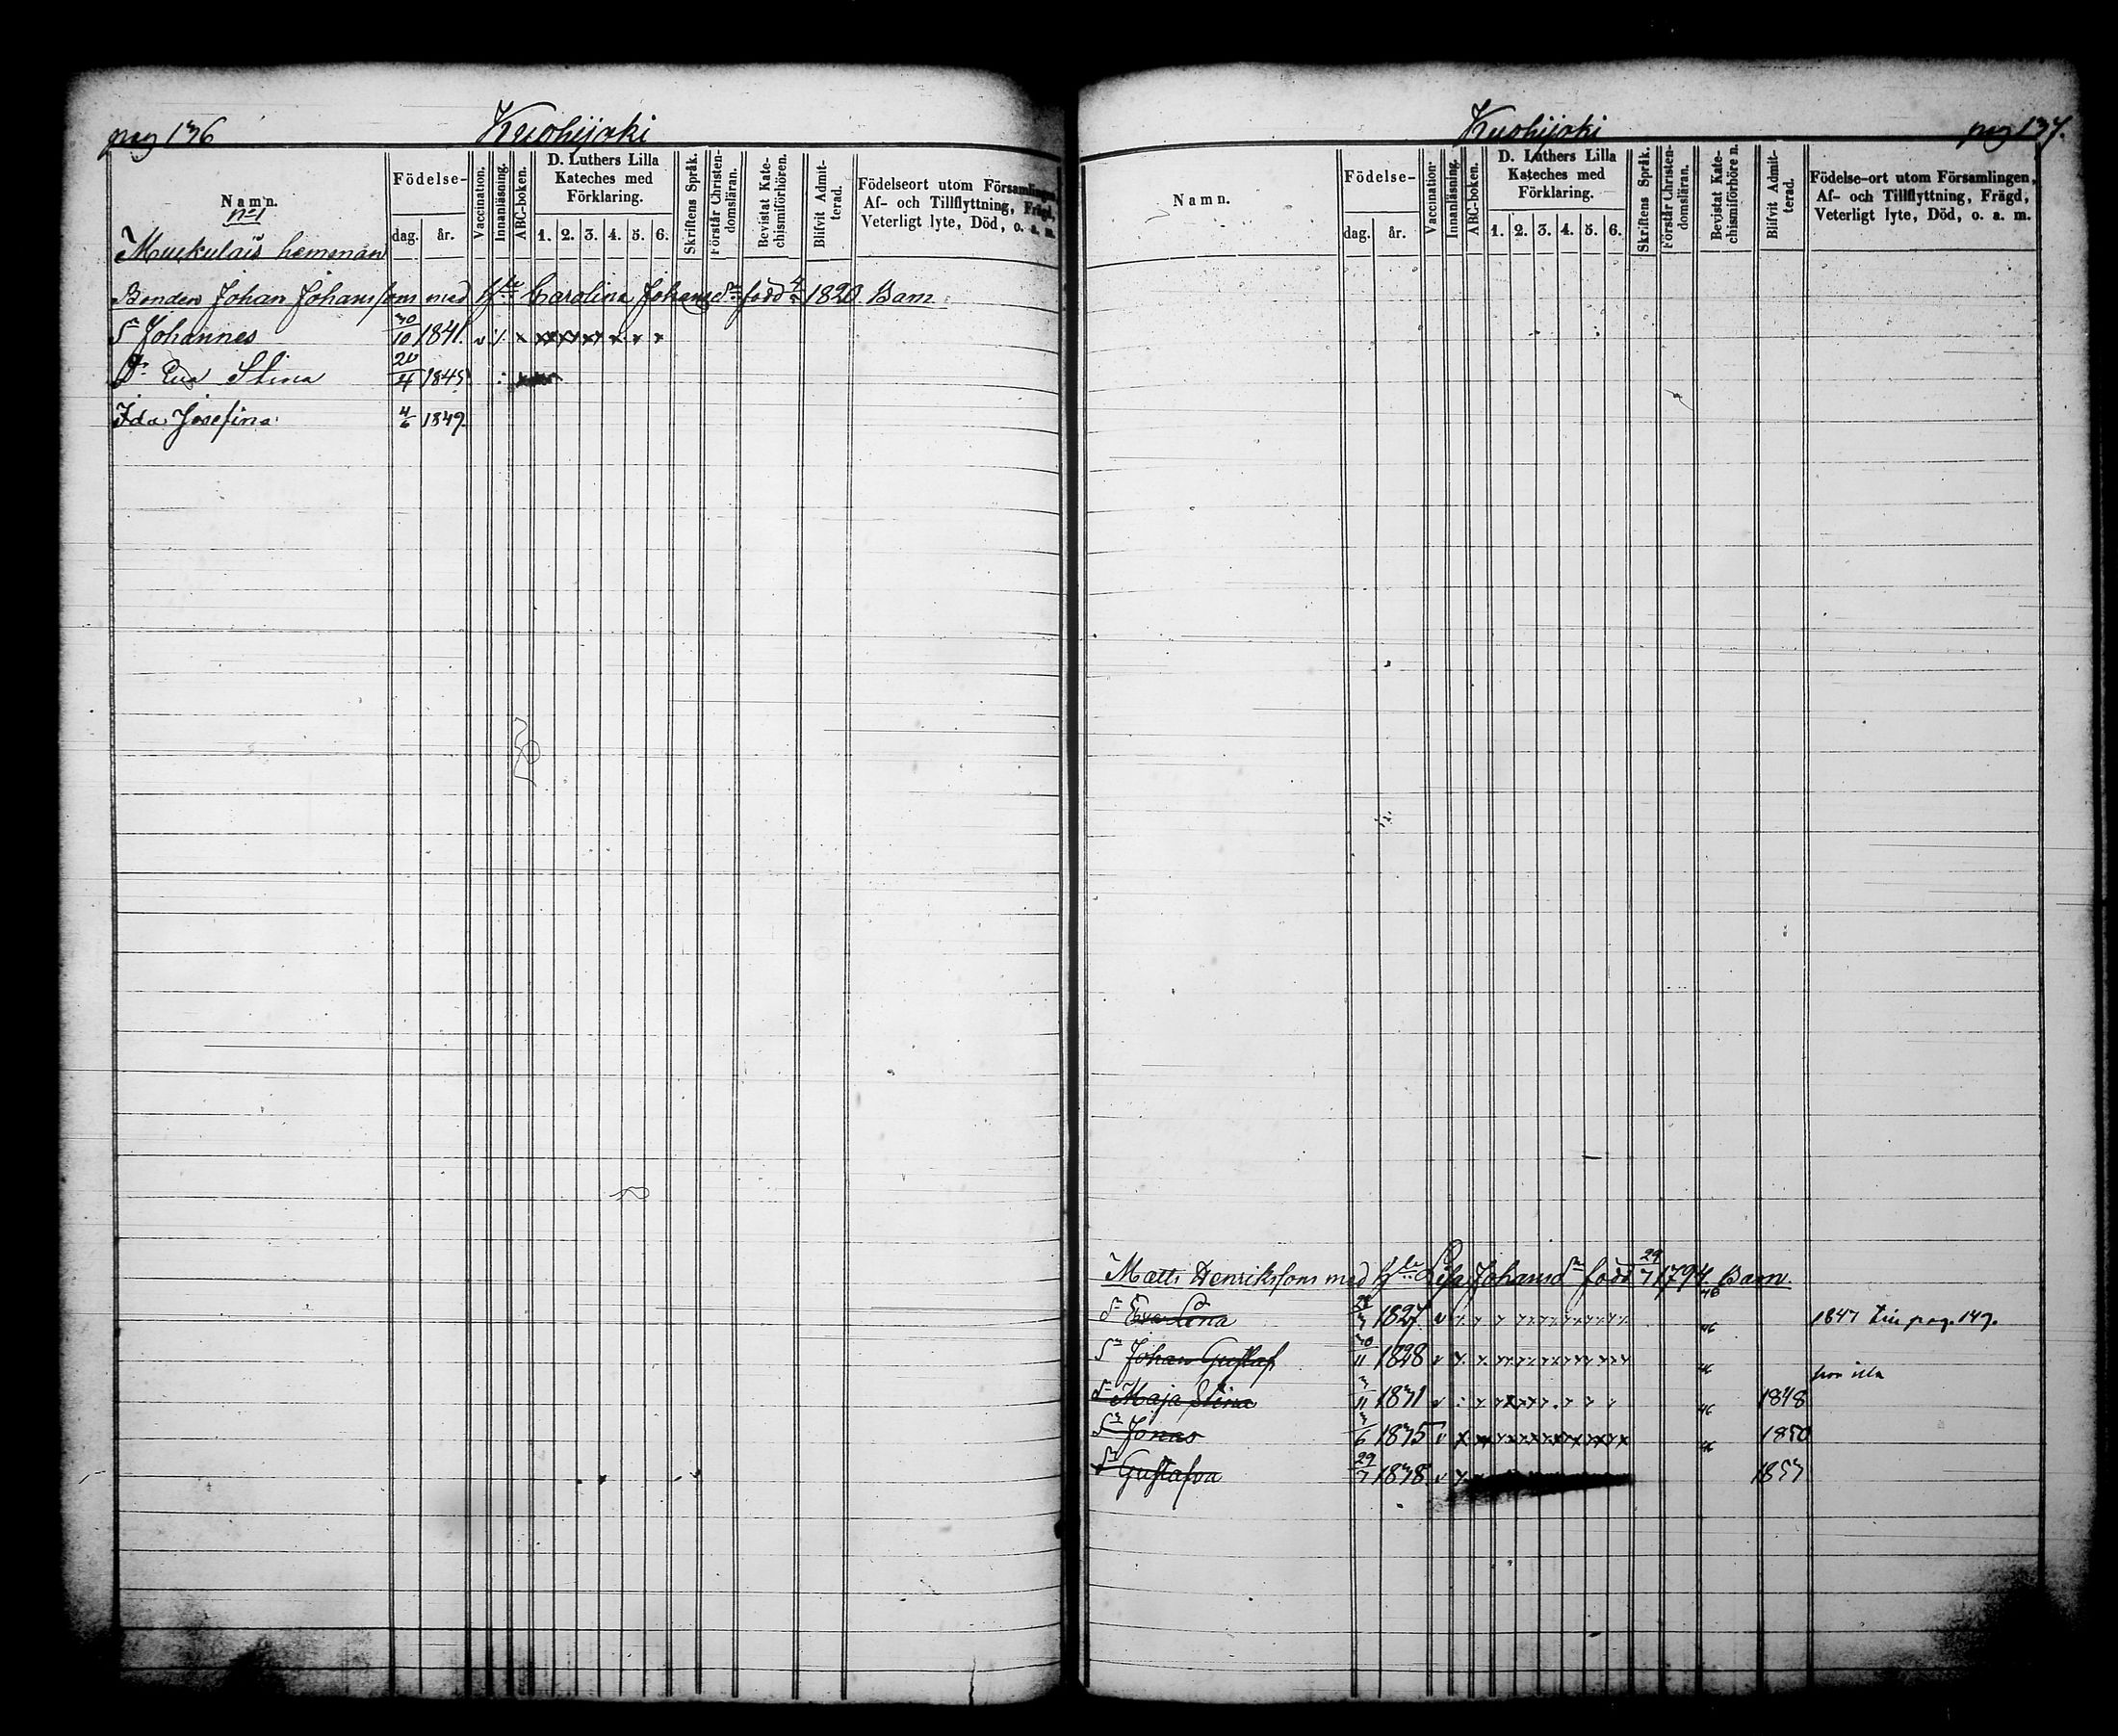 pag 136
Kuohijoki
Namn.
Födelse-
dag. år.
Vaccination.
Innanläsning.
ABC-boken.
D. Luthers Lilla Kateches med Förklaring.
1. 2. 3. 4. 5. 6.
Skriftens Språk.
Förstår Christendomsläran.
Bevistat Katechismiförhören.
Blifvit Admitterad.
Födelseort utom Församlingen,
Af- och Tillflyttning, Frägd,
Veterligt lyte, Död, o. a. m.
No 1
Muckulais hemman
Bonden Johan Johanssons med h:u Carolina Johansd:r född 1820 Barn
S. Johannes 30/10 1841
D. Eva Stina 20/4 1845
Ida Josefina 4/6 1849
Kuohijoki
pag 137.
Namn.
Födelse-
dag. år.
Vaccination.
Innanläsning.
ABC-boken.
D. Luthers Lilla Kateches med Förklaring.
1. 2. 3. 4. 5. 6.
Skriftens Språk.
Förstår Christendomsläran.
Bevistat Katechismiförhören.
Blifvit Admitterad.
Födelse-ort utom Församlingen,
Af- och Tillflyttning, Frägd,
Veterligt lyte, Död, o. a. m.
Matts Henrikssons med h:u Lisa Johansd:r född 29/7 1794 Barn.
Eva Lena 1827 46 1847 pag. 149.
Johan Gustaf 30/11 1828 46
Maja Stina 3/11 1831 46 1848
Jonas 3/6 1835 46 1850
Gustafva 29/7 1838 46 1853